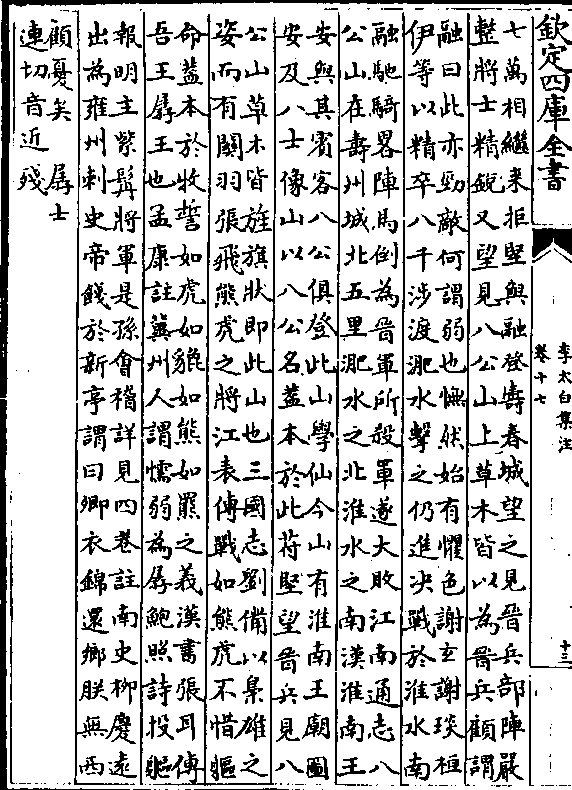 欽定四庫全書
李太白集注
卷十七
十三
七萬相繼來拒堅與融登壽春城望之見晉兵部陣嚴
整將士精銳又望見八公山上草木皆以為晉兵顧謂
融曰此亦勁敵何謂弱也憮然始有懼色謝玄謝琰桓
伊等以精卒八千涉渡淝水擊之仍進決戰於淮水南
融馳騎畧陣馬倒為晉軍所殺軍遂大敗江南通志八
公山在壽州城北五里淝水之北淮水之南漢淮南王
安與其賓客八公俱登此山學仙今山有淮南王廟圖
安及八士像山以八公名蓋本於此苻堅望晉兵見八
公山草木皆旌旗狀即此山也三國志劉備以梟雄之
姿而有關羽張飛熊虎之將江表傳戰如熊虎不惜軀
命蓋本於牧誓如虎如貔如熊如羆之義漢書張耳傳
吾王孱王也孟康註冀州人謂懦弱為孱鮑照詩投軀
報明主紫髯將軍是孫會稽詳見四卷註南史柳慶遠
出為雍州刺史帝餞於新亭謂曰卿衣錦還鄉朕無西
顧憂矣 孱士
連切音近殘